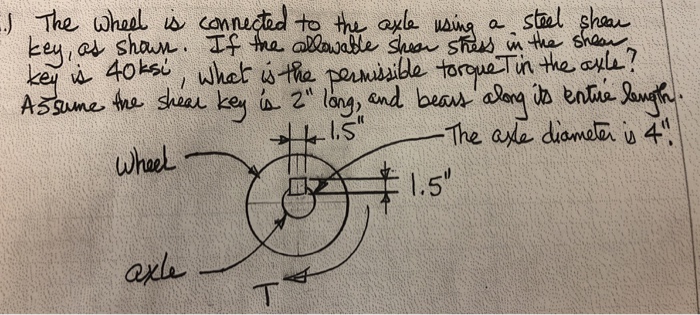 .) The wheel is connected to the axle using a steel shear
key, as shown. If the allowable shear stress in the shear
key is 40ksi, what is the permissible torque T in the axle?
Assume the shear key is 2" long, and bears along its entire length.
1.5"
The axle diameter is 4".
wheel
1.5"
axle
T